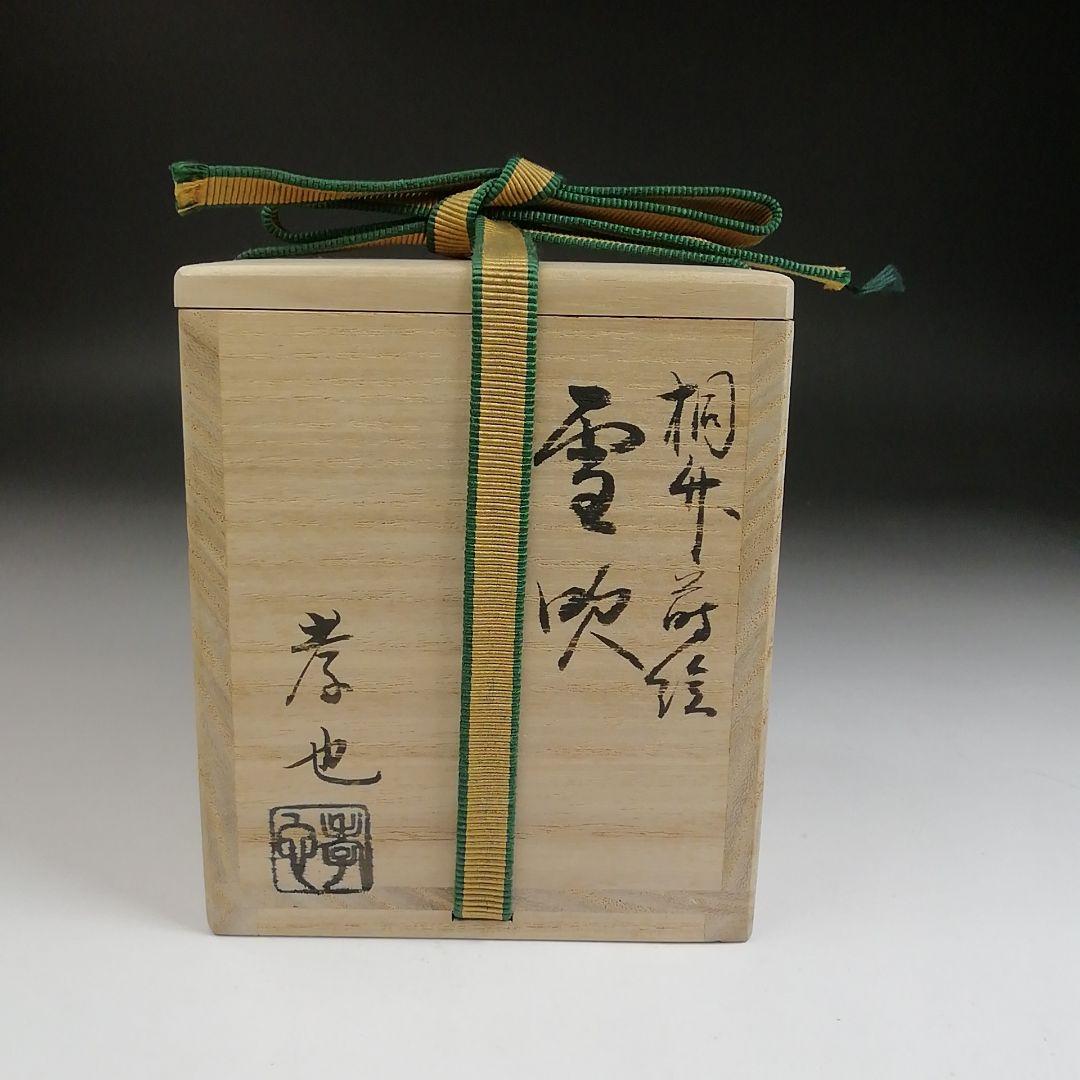 桐竹蒔絵
雪吹
孝也
孝也